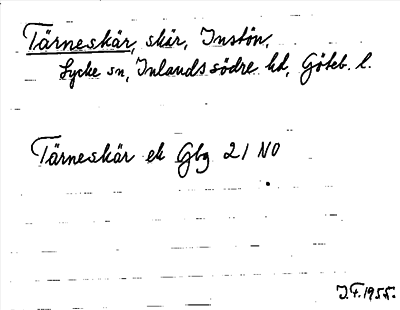 Tärneskär, skär, Instön,
Lycke sn, Inlands södre hd, Göteb. l.
Tärneskär ek Gbg 21 NO
J.F. 1955.